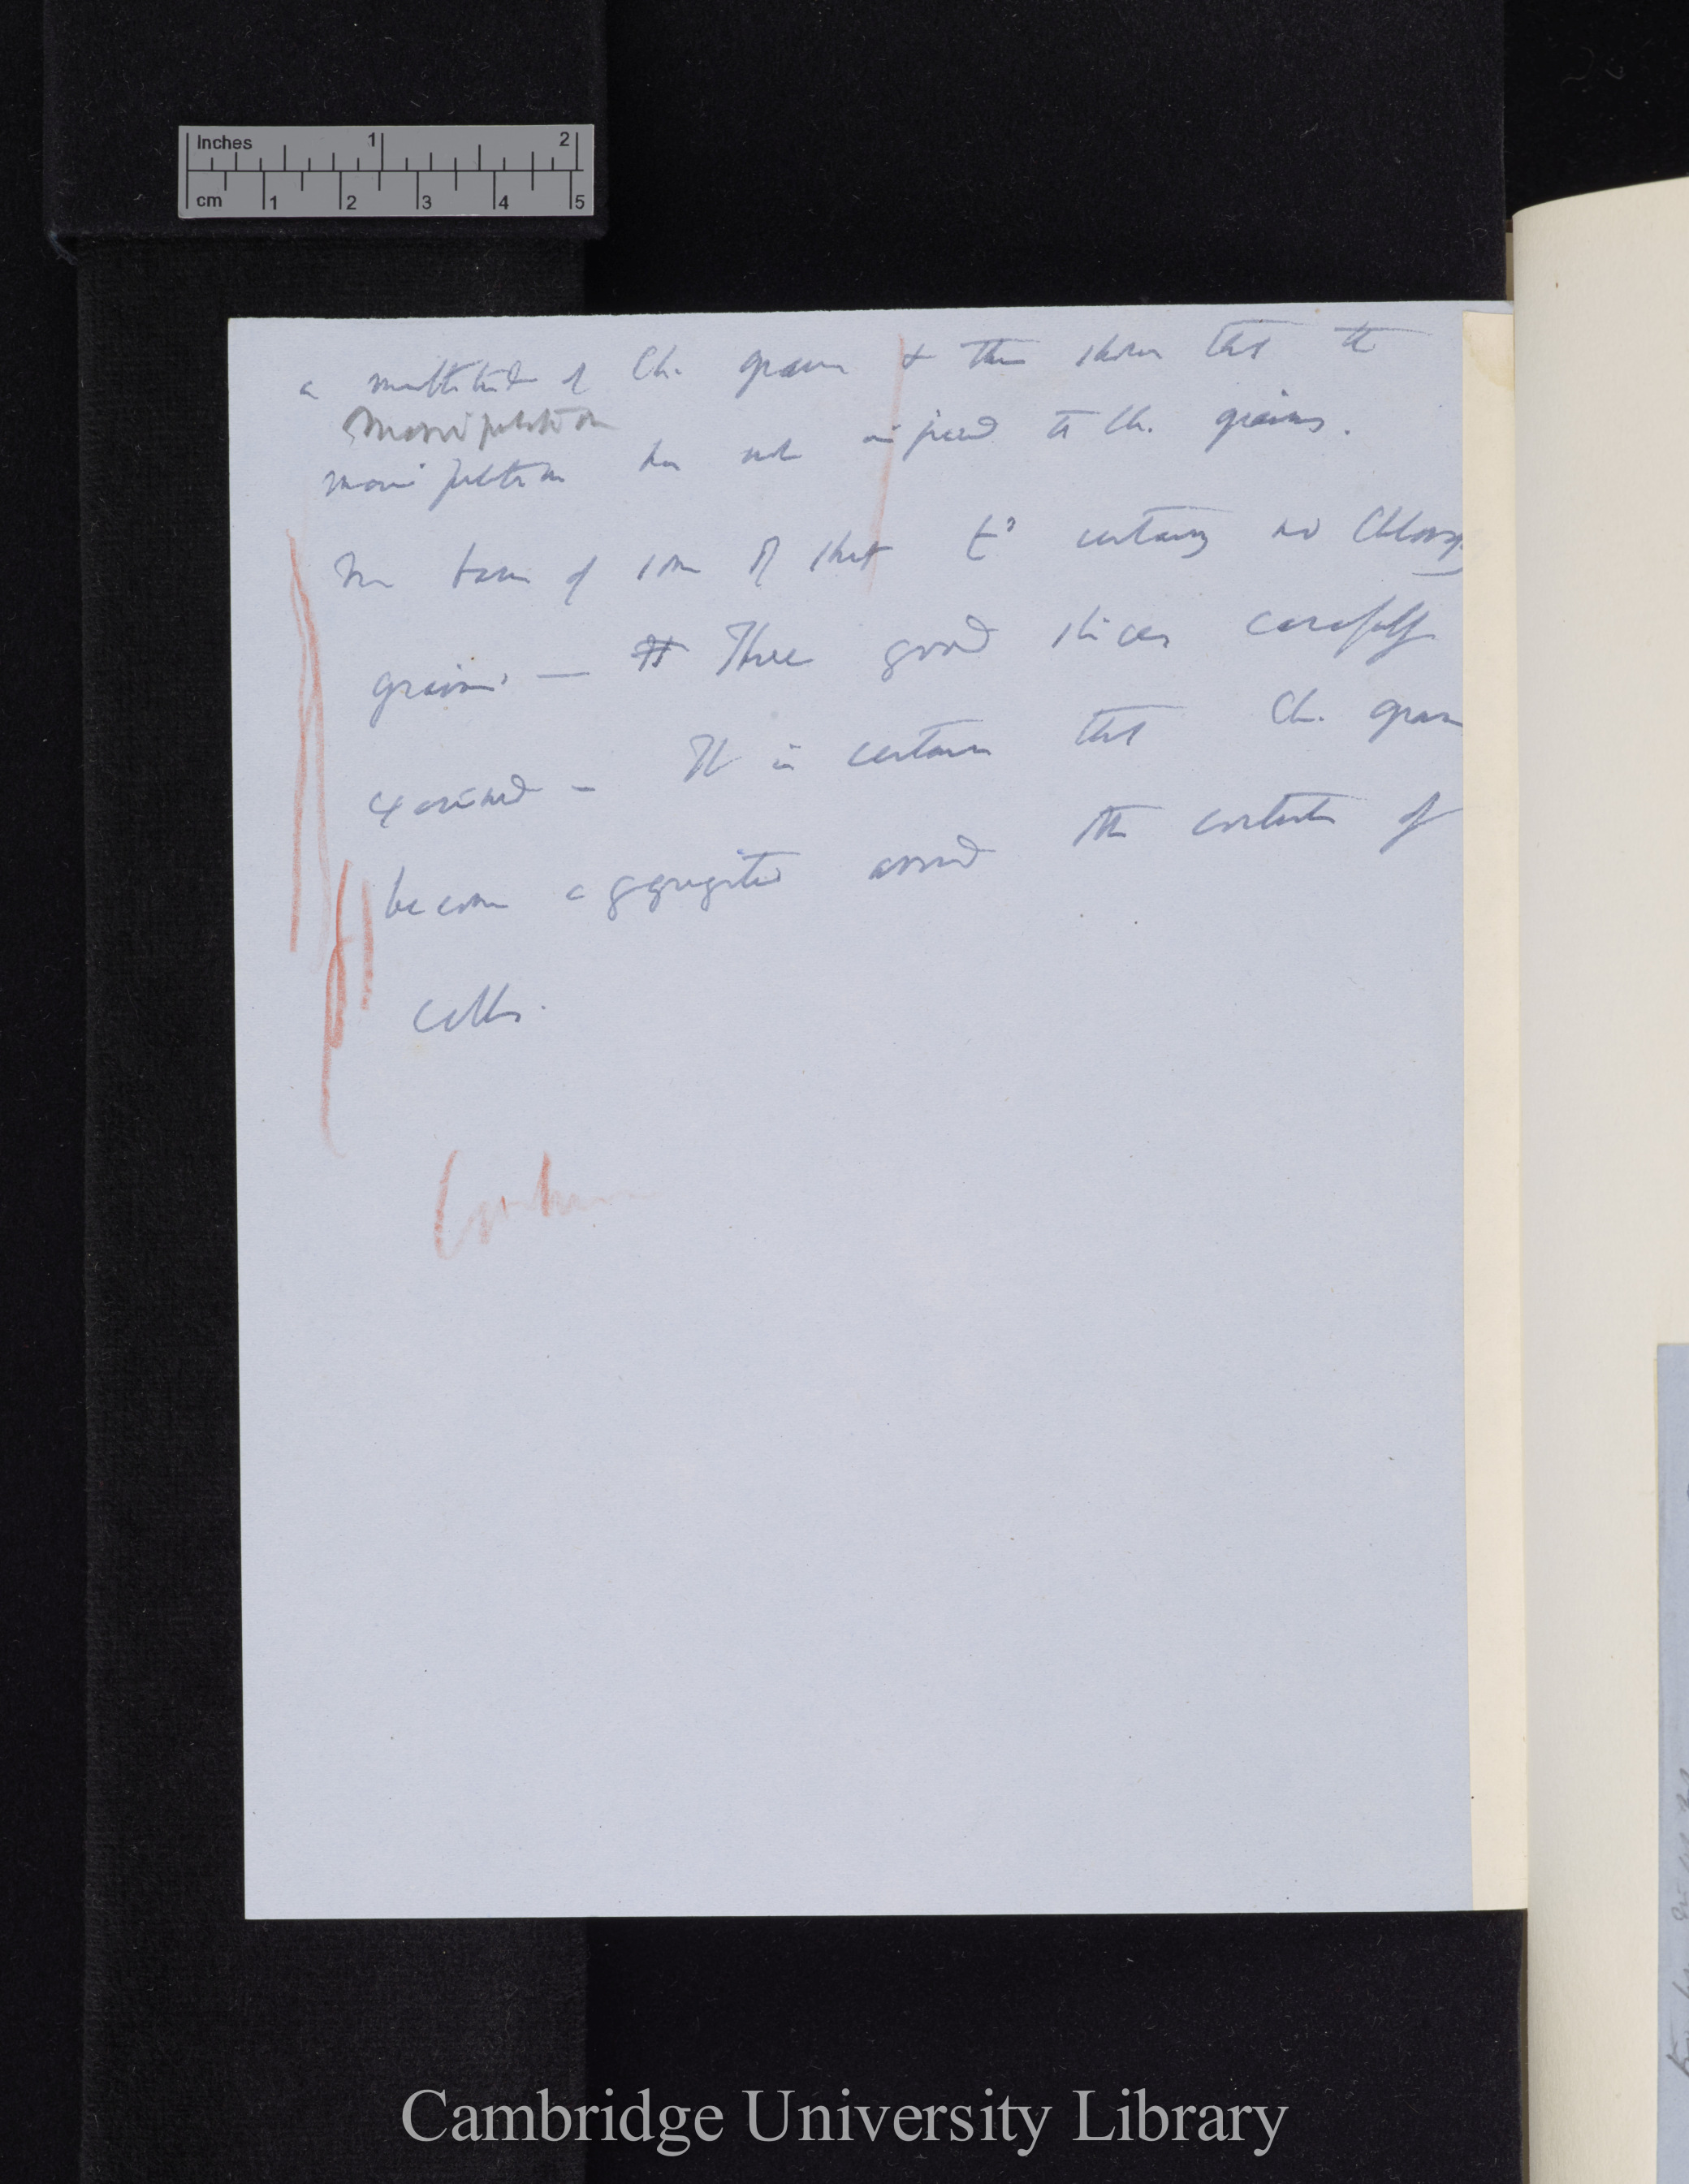 Inches 1 2
cm 1 2 3 4 5
a multitude of Ch. grains & this shows that the
manipulation
manipulation has not injured the Ch. grains.
base of some of that certainly no Chlorop
grains. — Three good slices carefully
examined — It is certain that Ch. grains
become aggregated around the contents of
cells.
Cambridge University Library